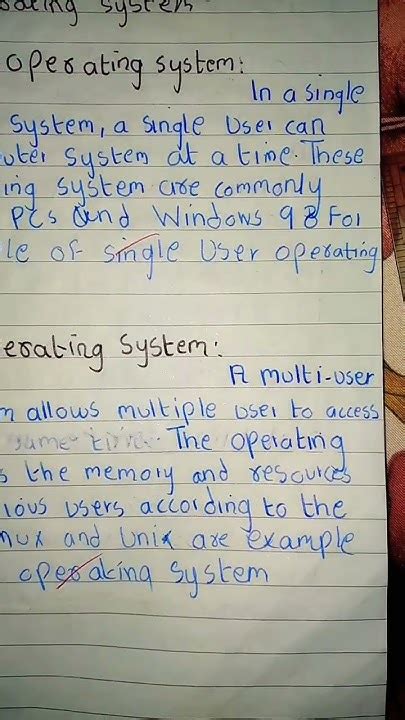 ating system
operating system:
In a single
system, a single User can
uter system at a time. These
ing system are commonly
PCs and Windows 98 For
le of single User operating
erating system:
A multi-user
m allows multiple user to access
same time. The operating
s the memory and resources
ious users according to the
nux and Unix are example
operating system